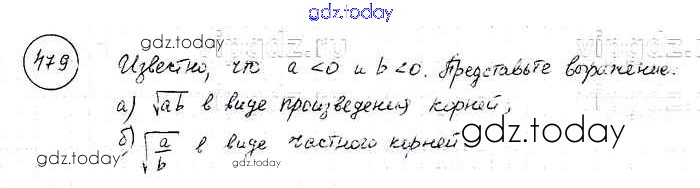 gdz.today
479 Известно, что a < 0 и b < 0. Представьте выражение:
а) √ab в виде произведения корней;
б) √a/b в виде частного корней
gdz.today
gdz.today
gdz.today
gdz.today
gdz.today